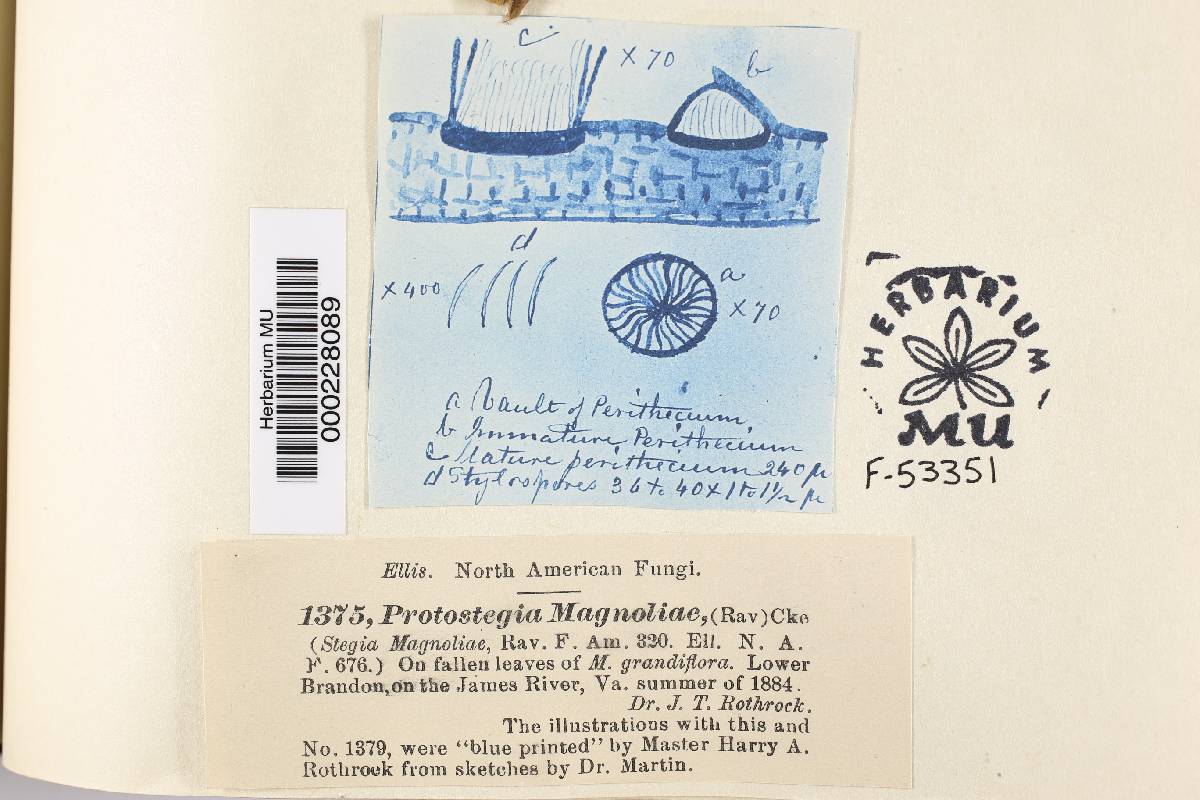 c
× 70
b
d
× 400
a
× 70
a Vault of Perithecium,
b Immature Perithecium
c Mature perithecium 240 µ
d Stylospores 36 to 40 × 1 to 1½ µ
Herbarium MU
000228089
HERBARIUM
MU
F-53351
Ellis. North American Fungi.
1375, Protostegia Magnoliae, (Rav) Cke
(Stegia Magnoliae, Rav. F. Am. 320. Ell. N. A.
F. 676.) On fallen leaves of M. grandiflora. Lower
Brandon, on the James River, Va. summer of 1884.
Dr. J. T. Rothrock.
The illustrations with this and
No. 1379, were "blue printed" by Master Harry A.
Rothrock from sketches by Dr. Martin.